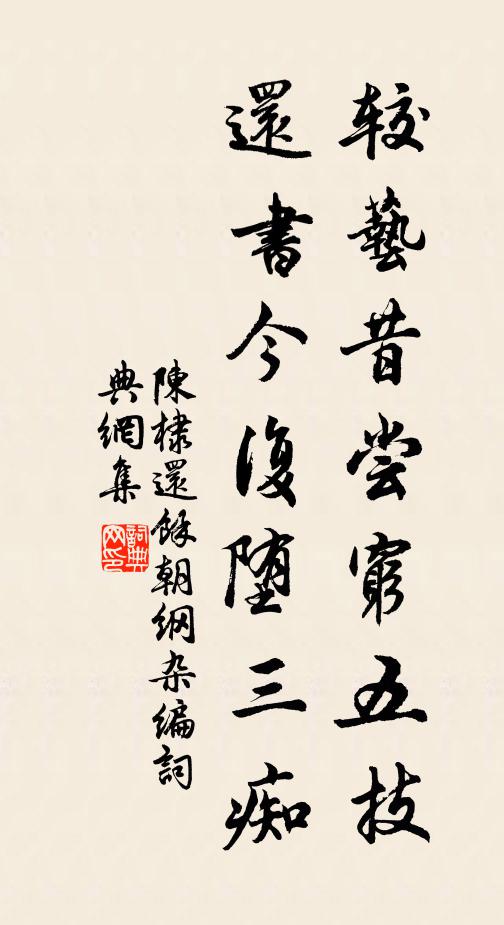 较藝昔尝窮五技
還書今復堕三痴
陳棣還餘朝纲杂编詞
典網集
詞典網印